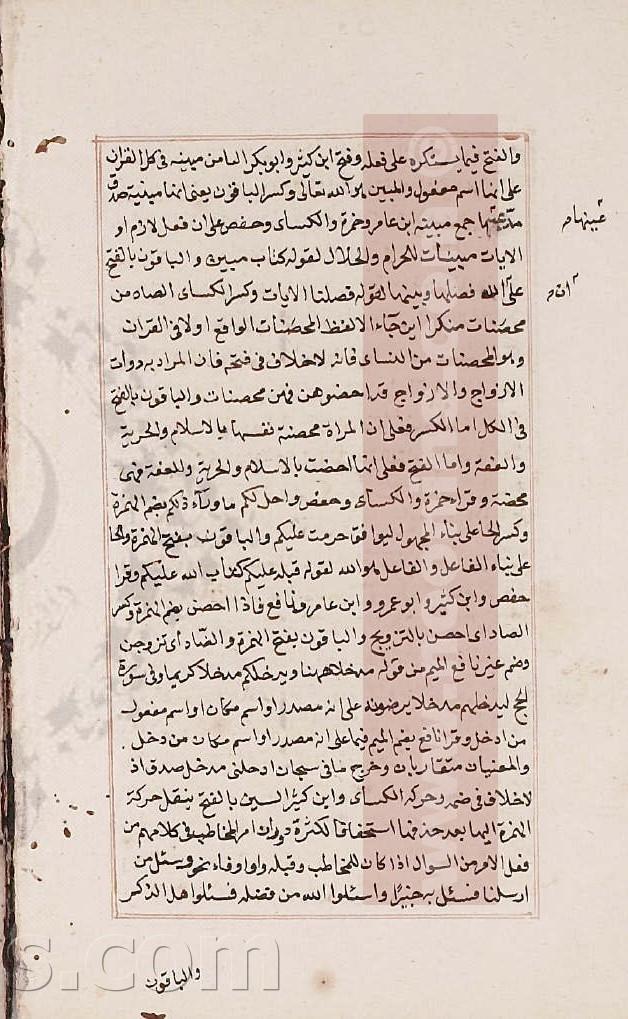 والفتح فيما يستكره على فعله وفتح ابن كثير وابو بكر اليا من مبينه في كل القران
على انها اسم مفعول والمبين هو الله تعالى وكسر الباقون يعنى انها مبينة صدق
مدعيها جمع مبينه ابن عامر وحمزة والكساى وحفص على ان فعل لازم او
الايات مبينات للحرام والحلال لقوله كتاب مبين والباقون بالفتح
على الله فصلها وبينها لقوله فصلنا الايات وكسر الكساى الصاد من
محصنات منكرا اين جاء الا لفظ المحصنات الواقع اولا فى القران
وهو المحصنات من النساى فانه لا خلاف فى فتحه فان المراد به ذوات
الازواج والازواج قد احصنوهن فهن محصنات والباقون بالفتح
فى الكل اما الكسر فعلى ان المراة محصنة نفسها بالاسلام والحرية
والعفة واما الفتح فعلى انها احصنت بالاسلام والحرية والعفة فهى
محصنة وقراء حمزة والكساى وحفص واحل لكم ماوراء ذلكم بضم الهمزة
وكسر الحا على بناء المجهول ليوافق حرمت عليكم والباقون بفتح الهمزة والحا
على بناء الفاعل والفاعل هو الله لقوله قبله عليكم كتاب الله عليكم وقرا
حفص وابن كثير وابو عمرو وابن عامر ونافع فاذا احصن بضم الهمزة وكسر
الصاد اى احصن بالتزويج والباقون بفتح الهمزة والصاد اى تزوجن
وضم غير نافع الميم من قوله مدخلا ههنا ويدخلكم مدخلا كريما وفى سورة
الحج ليدخلهم مدخلا يرضونه على انه مصدر او اسم مكان او اسم مفعول
من ادخل وقرا نافع بضم الميم فيها على انه مصدر او اسم مكان من دخل
والمعنيان متقاربان وخرج ما فى سبحان ادخلنى مدخل صدق اذ
لا خلاف فى ضمه وحركه الكساى وابن كثير السين بالفتح بنقل حركة
الهمزة اليها بعد حذفها استخفافا لكثرة دوران امر المخاطب فى كلامهم من
فعل الامر من السوال اذا كان للمخاطب وقبله واو او فاء نحو وسئل من
ارسلنا فسئل به خبيرًا واسئلوا الله من فضله فسئلوا اهل الذكر
والباقون
s.com